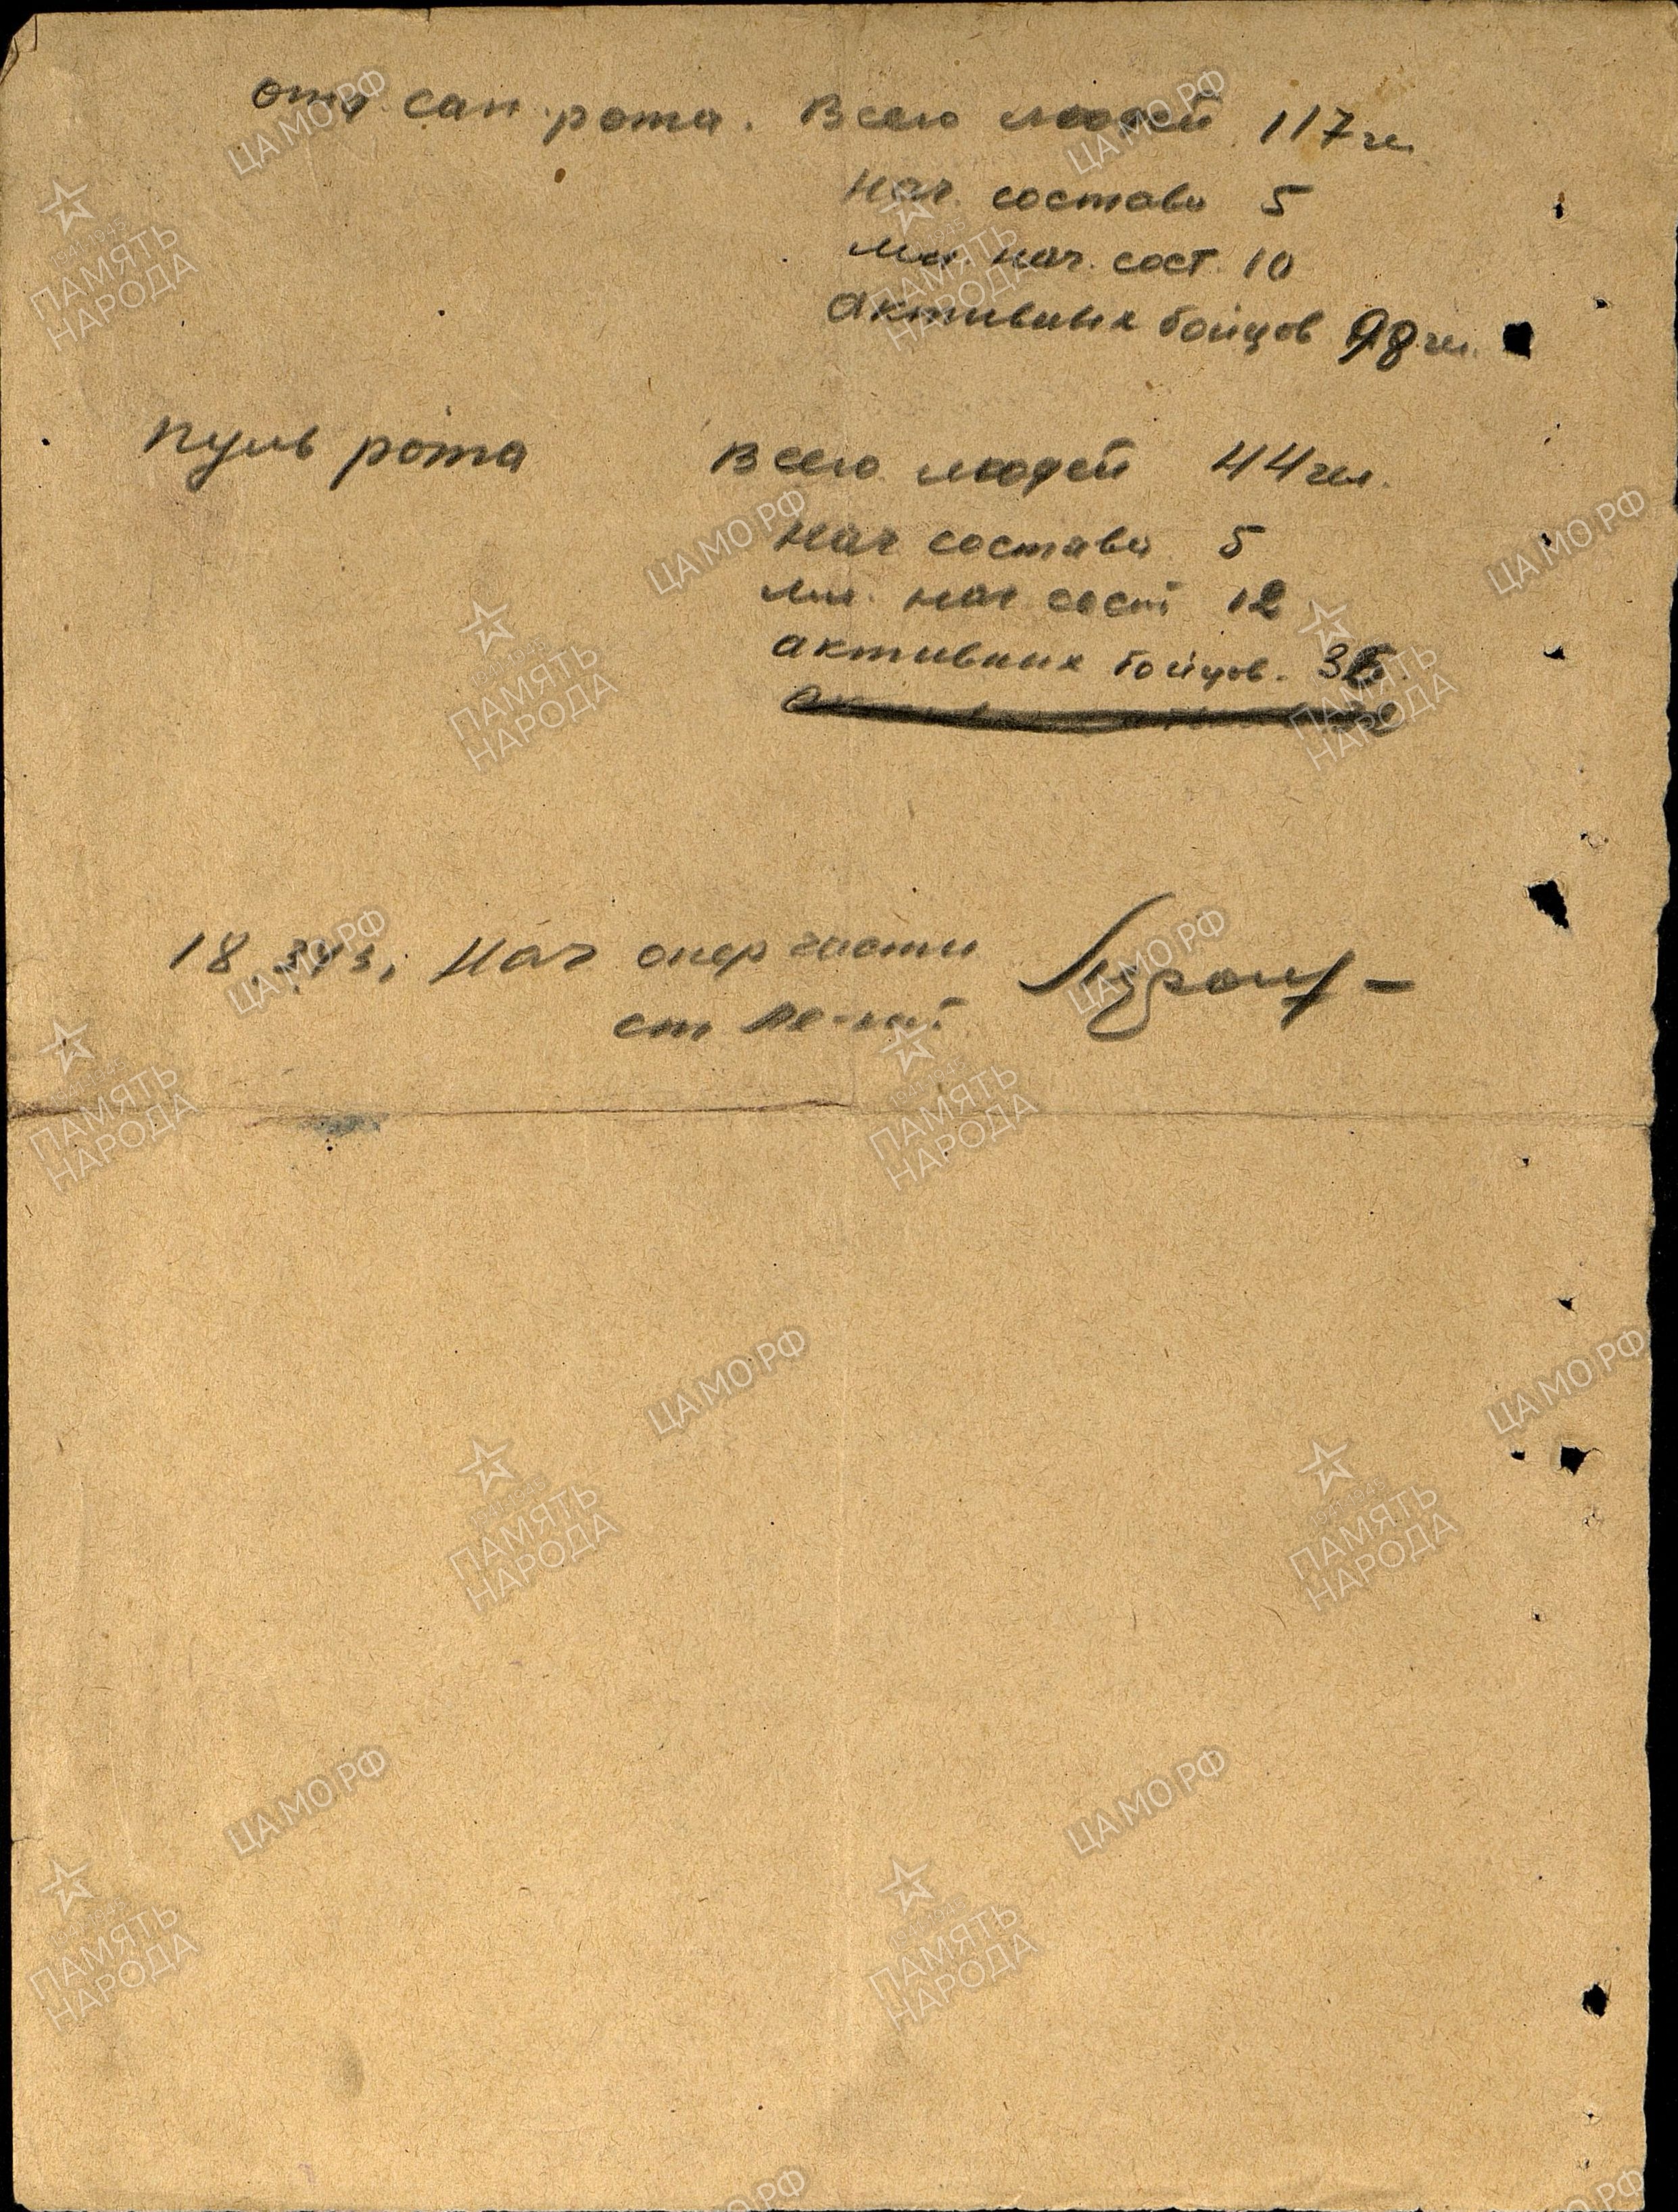 отд. сап. рота. Всего людей 117 чл.
Нач. состава 5
мл. нач. сост. 10
активных бойцов 98 чл.
Пуль рота Всего людей 44 чл.
Нач состава 5
мл. нач сост 12
активных бойцов. 36.
18.3.43. Нач опер части
ст ле-нт
ЦАМО РФ
ПАМЯТЬ
НАРОДА